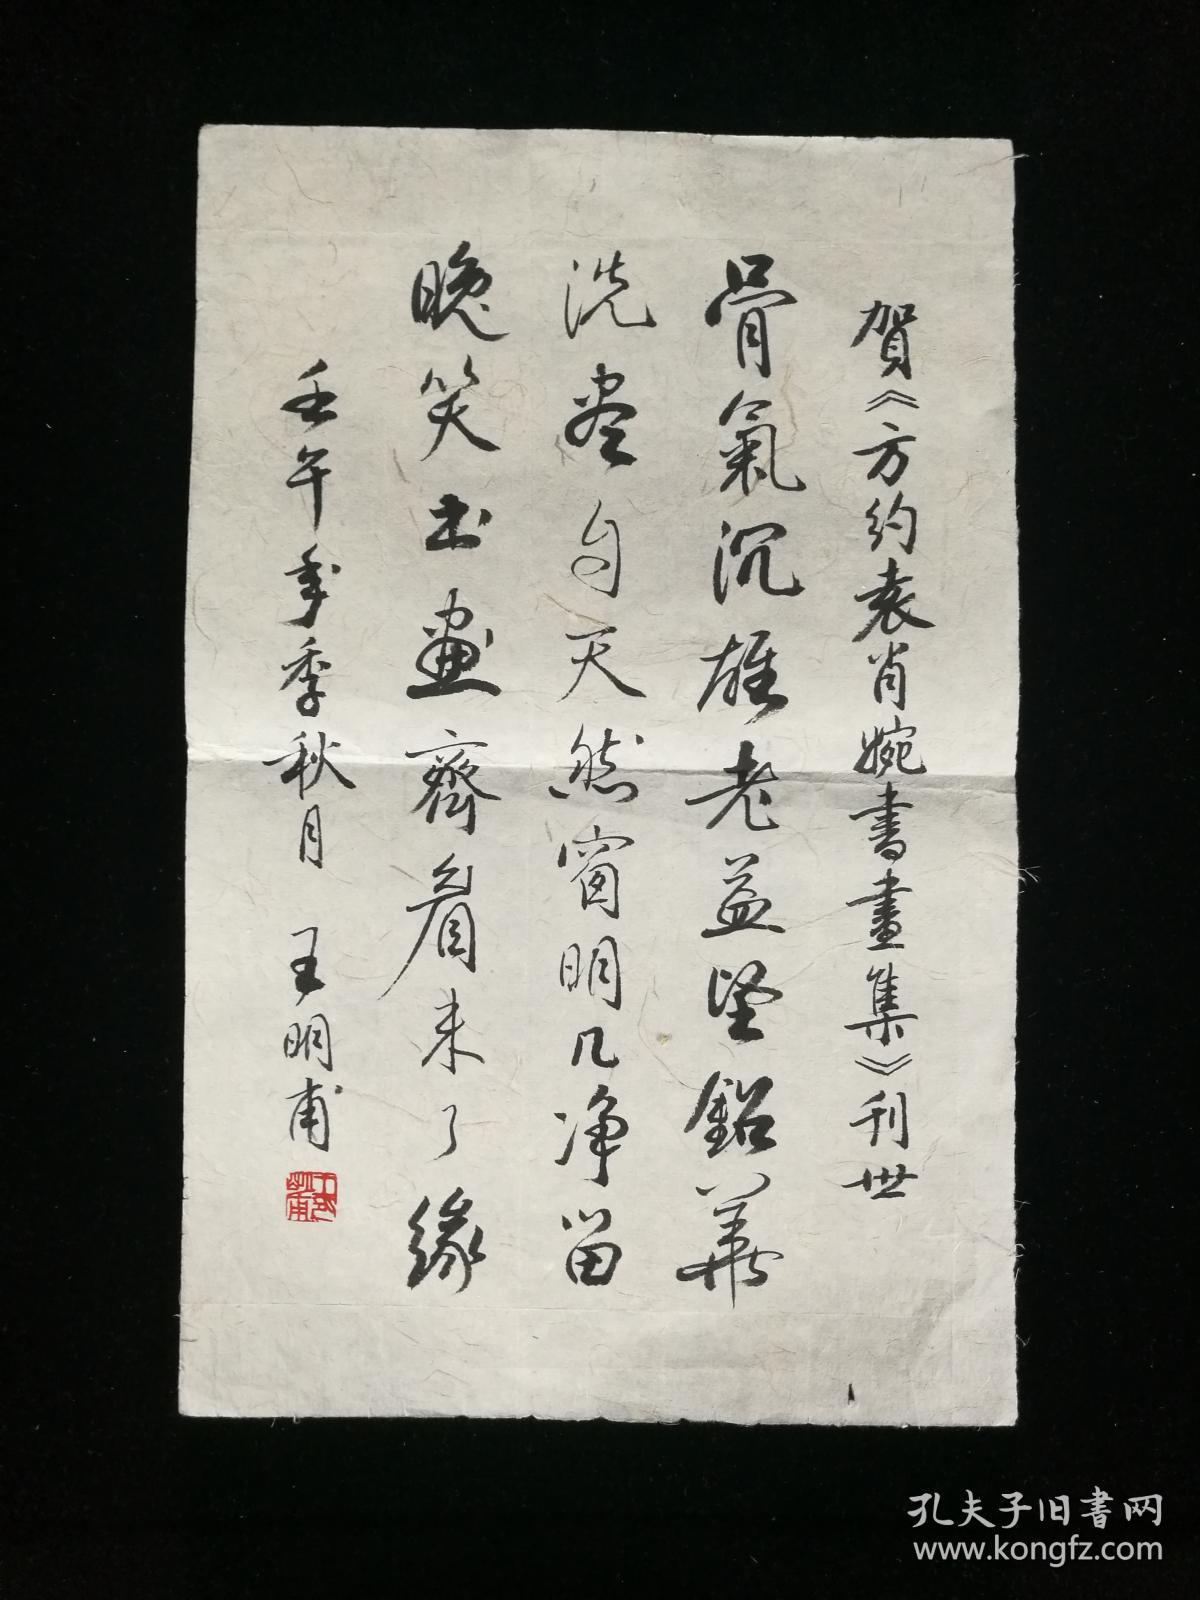 賀《方約袁肖婉書畫集》刊世
骨氣沉雄老益堅鉛華
洗盡自天然窗明几净留
晚笑书畫齊眉未了緣
壬午年季秋月 王明甫
孔夫子旧书网
www.kongfz.com